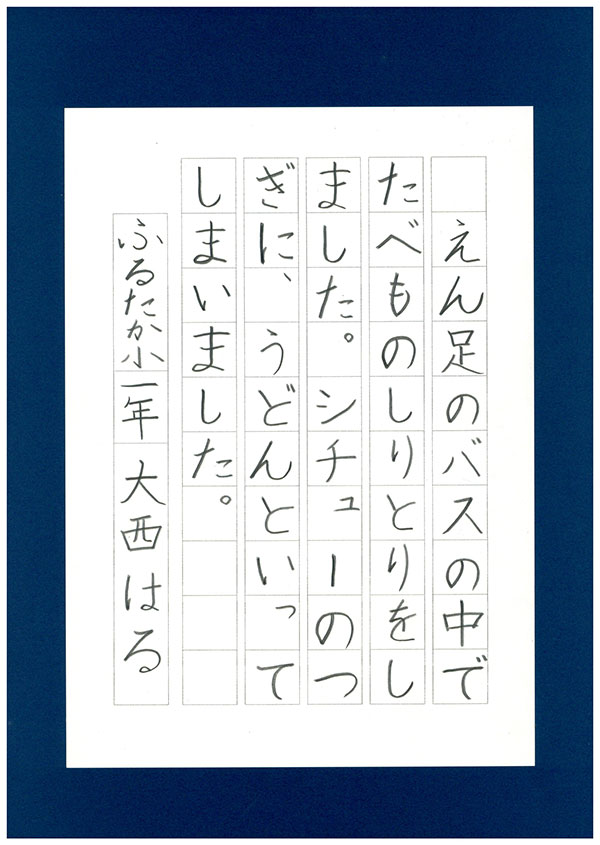 えん足のバスの中で
たべものしりとりをし
ました。シチューのつ
ぎに、うどんといって
しまいました。
ふるたか小一年 大西はる